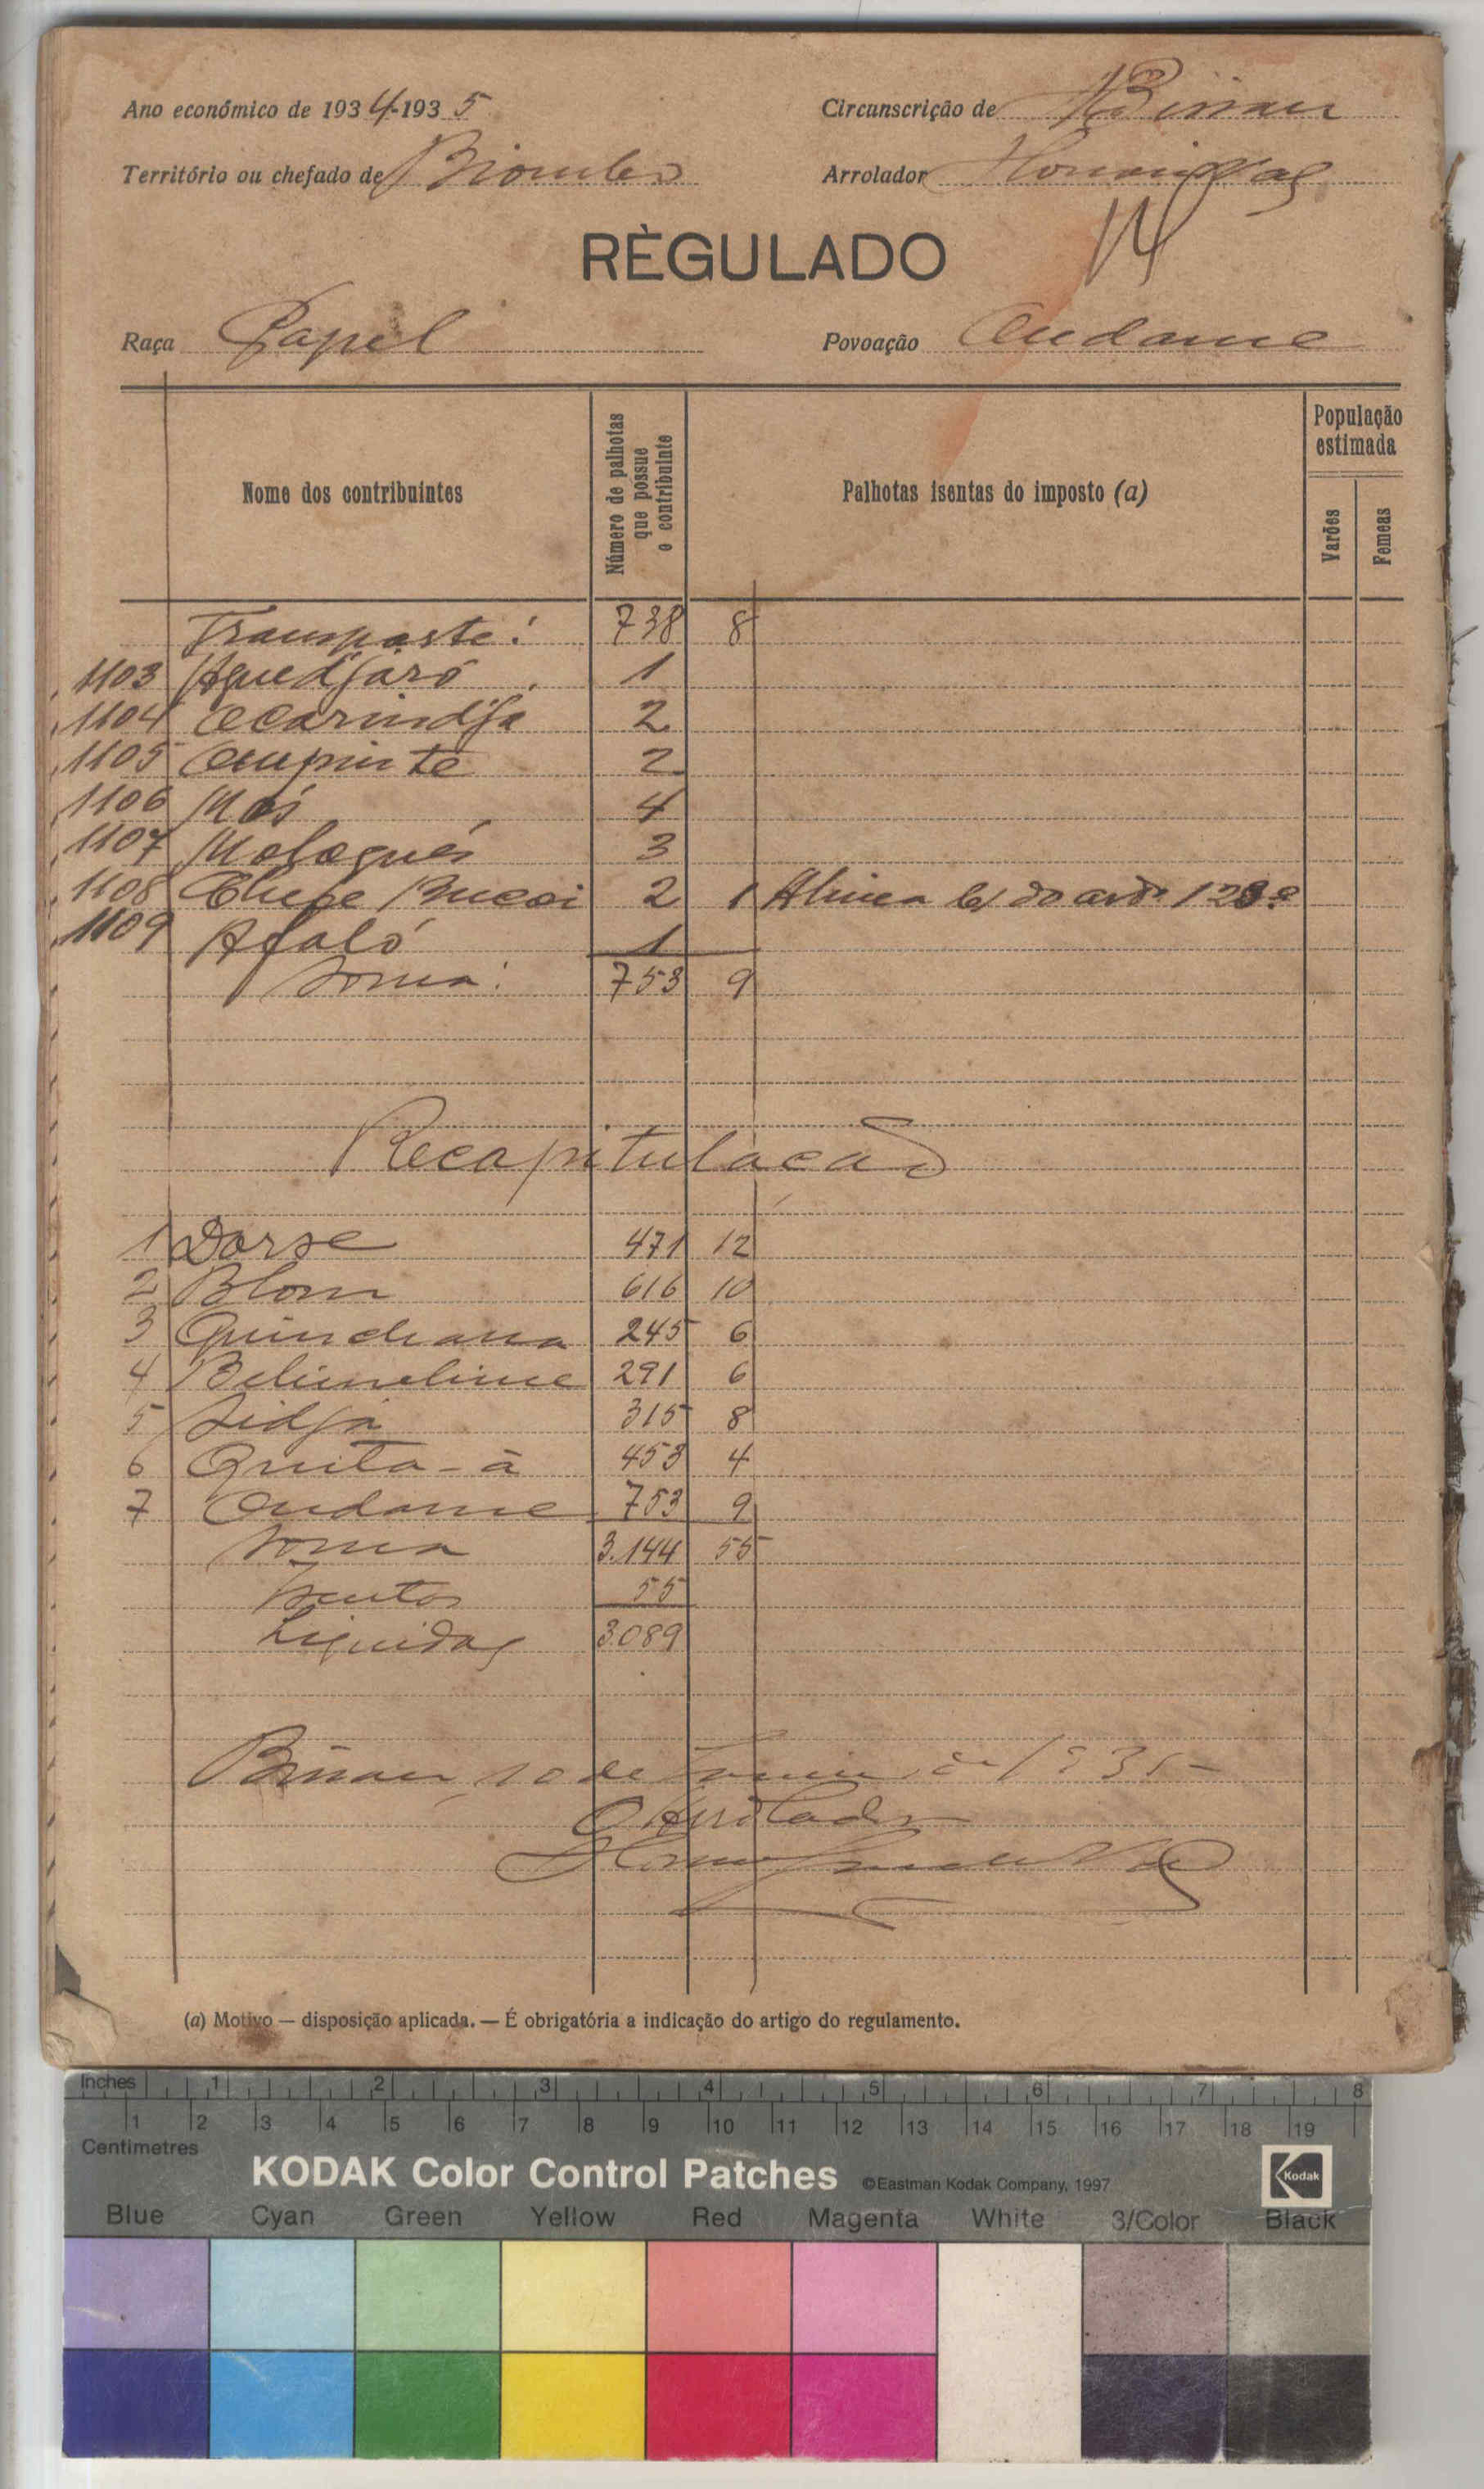 Ano económico de 1934-1935
Circunscrição de Bissau
Território ou chefado de Biombo
Arrolador
RÈGULADO
Raça Papel
Povoação Ondame
Nome dos contribuintes
Número de palhotas que possue o contribuinte
Palhotas isentas do imposto (a)
População estimada
Varões
Femeas
Transporte: 738 8
1103 Aguedjaró 1
1104 Ocarindja 2
1105 Oupinte 2
1106 Mós 4
1107 Malagués 3
1108 2 1 Alinea b) do artº 128º
1109 Afaló 1
Soma: 753 9
Recapitulação
1 Dorse 471 12
2 Blom 616 10
3 Quinchana 245 6
4 Belimelime 291 6
5 Sidjá 315 8
6 Quita-á 453 4
7 Ondame 753 9
Soma 3.144 55
Isentos 55
Liquidas 3.089
Bissau, 10 de de 1935
O Arrolador
(a) Motivo — disposição aplicada. — É obrigatória a indicação do artigo do regulamento.
Inches 1 2 3 4 5 6 7 8
1 2 3 4 5 6 7 8 9 10 11 12 13 14 15 16 17 18 19
Centimetres
KODAK Color Control Patches ©Eastman Kodak Company, 1997 Kodak
Blue Cyan Green Yellow Red Magenta White 3/Color Black